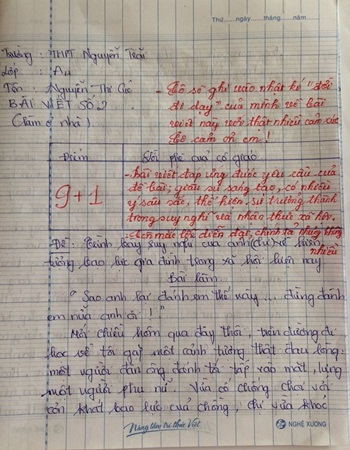 Thứ ngày tháng năm
Trường : THPT Nguyễn Trãi
Lớp : A4
Tên : Nguyễn Thị
BÀI VIẾT SỐ 2
(Làm ở nhà)
- Cô sẽ ghi vào nhật kí "đời
đi dạy" của mình về bài
viết này với thật nhiều cảm xúc
Cô cảm ơn em !
Điểm
Lời phê của cô giáo
9 + 1
- Bài viết đáp ứng được yêu cầu của
đề bài, giàu sự sáng tạo, có nhiều
ý sâu sắc, thể hiện sự trưởng thành
trong suy nghĩ và nhận thức xã hội.
- Còn mắc lỗi diễn đạt, chính tả nhưng không
nhiều
Đề : Trình bày suy nghĩ của anh (chị) về hiện
tượng bạo lực gia đình trong xã hội hiện nay
Bài làm
" Sao anh lại đánh em thế này ... đừng đánh
em nữa anh ơi ! "
Mới chiều hôm qua đây thôi, trên đường đi
học về tôi gặp một cảnh tượng thật đau lòng
một người đàn ông đánh tá tấp vào mặt, lưng
một người phụ nữ. Vừa cố chống chọi với
cơn khát bạo lực của chồng, chị vừa khóc
Nâng tầm tri thức Việt
NGHỆ XƯƠNG